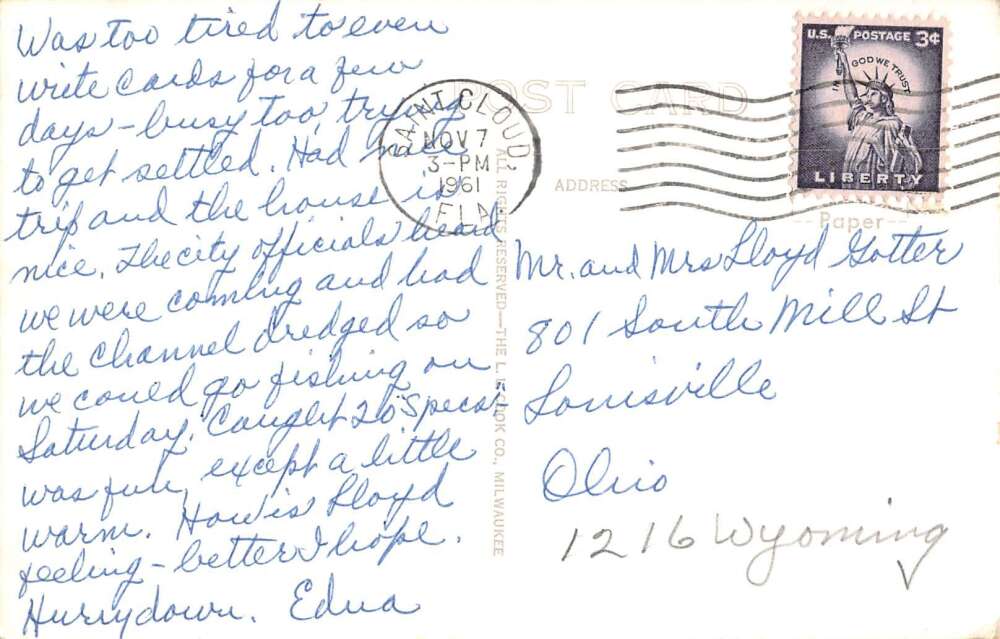 Was too tired to even
write cards for a few
days - busy too, trying
to get settled. Had nice
trip and the house is
nice. The city officials heard
we were coming and had
the channel dredged so
we could go fishing on
Saturday. Caught 20 specs.
was fun, except a little
warm. How is Lloyd
feeling - better I hope.
Hurry down. Edna
POST CARD
SAINT CLOUD,
NOV 7
3-PM
1961
FLA
ADDRESS
U.S. POSTAGE 3¢
IN GOD WE TRUST
LIBERTY
--Paper--
ALL RIGHTS RESERVED—THE L. L. COOK CO., MILWAUKEE
Mr. and Mrs Lloyd Gotter
801 South Mill St
Louisville
Ohio
1216 Wyoming